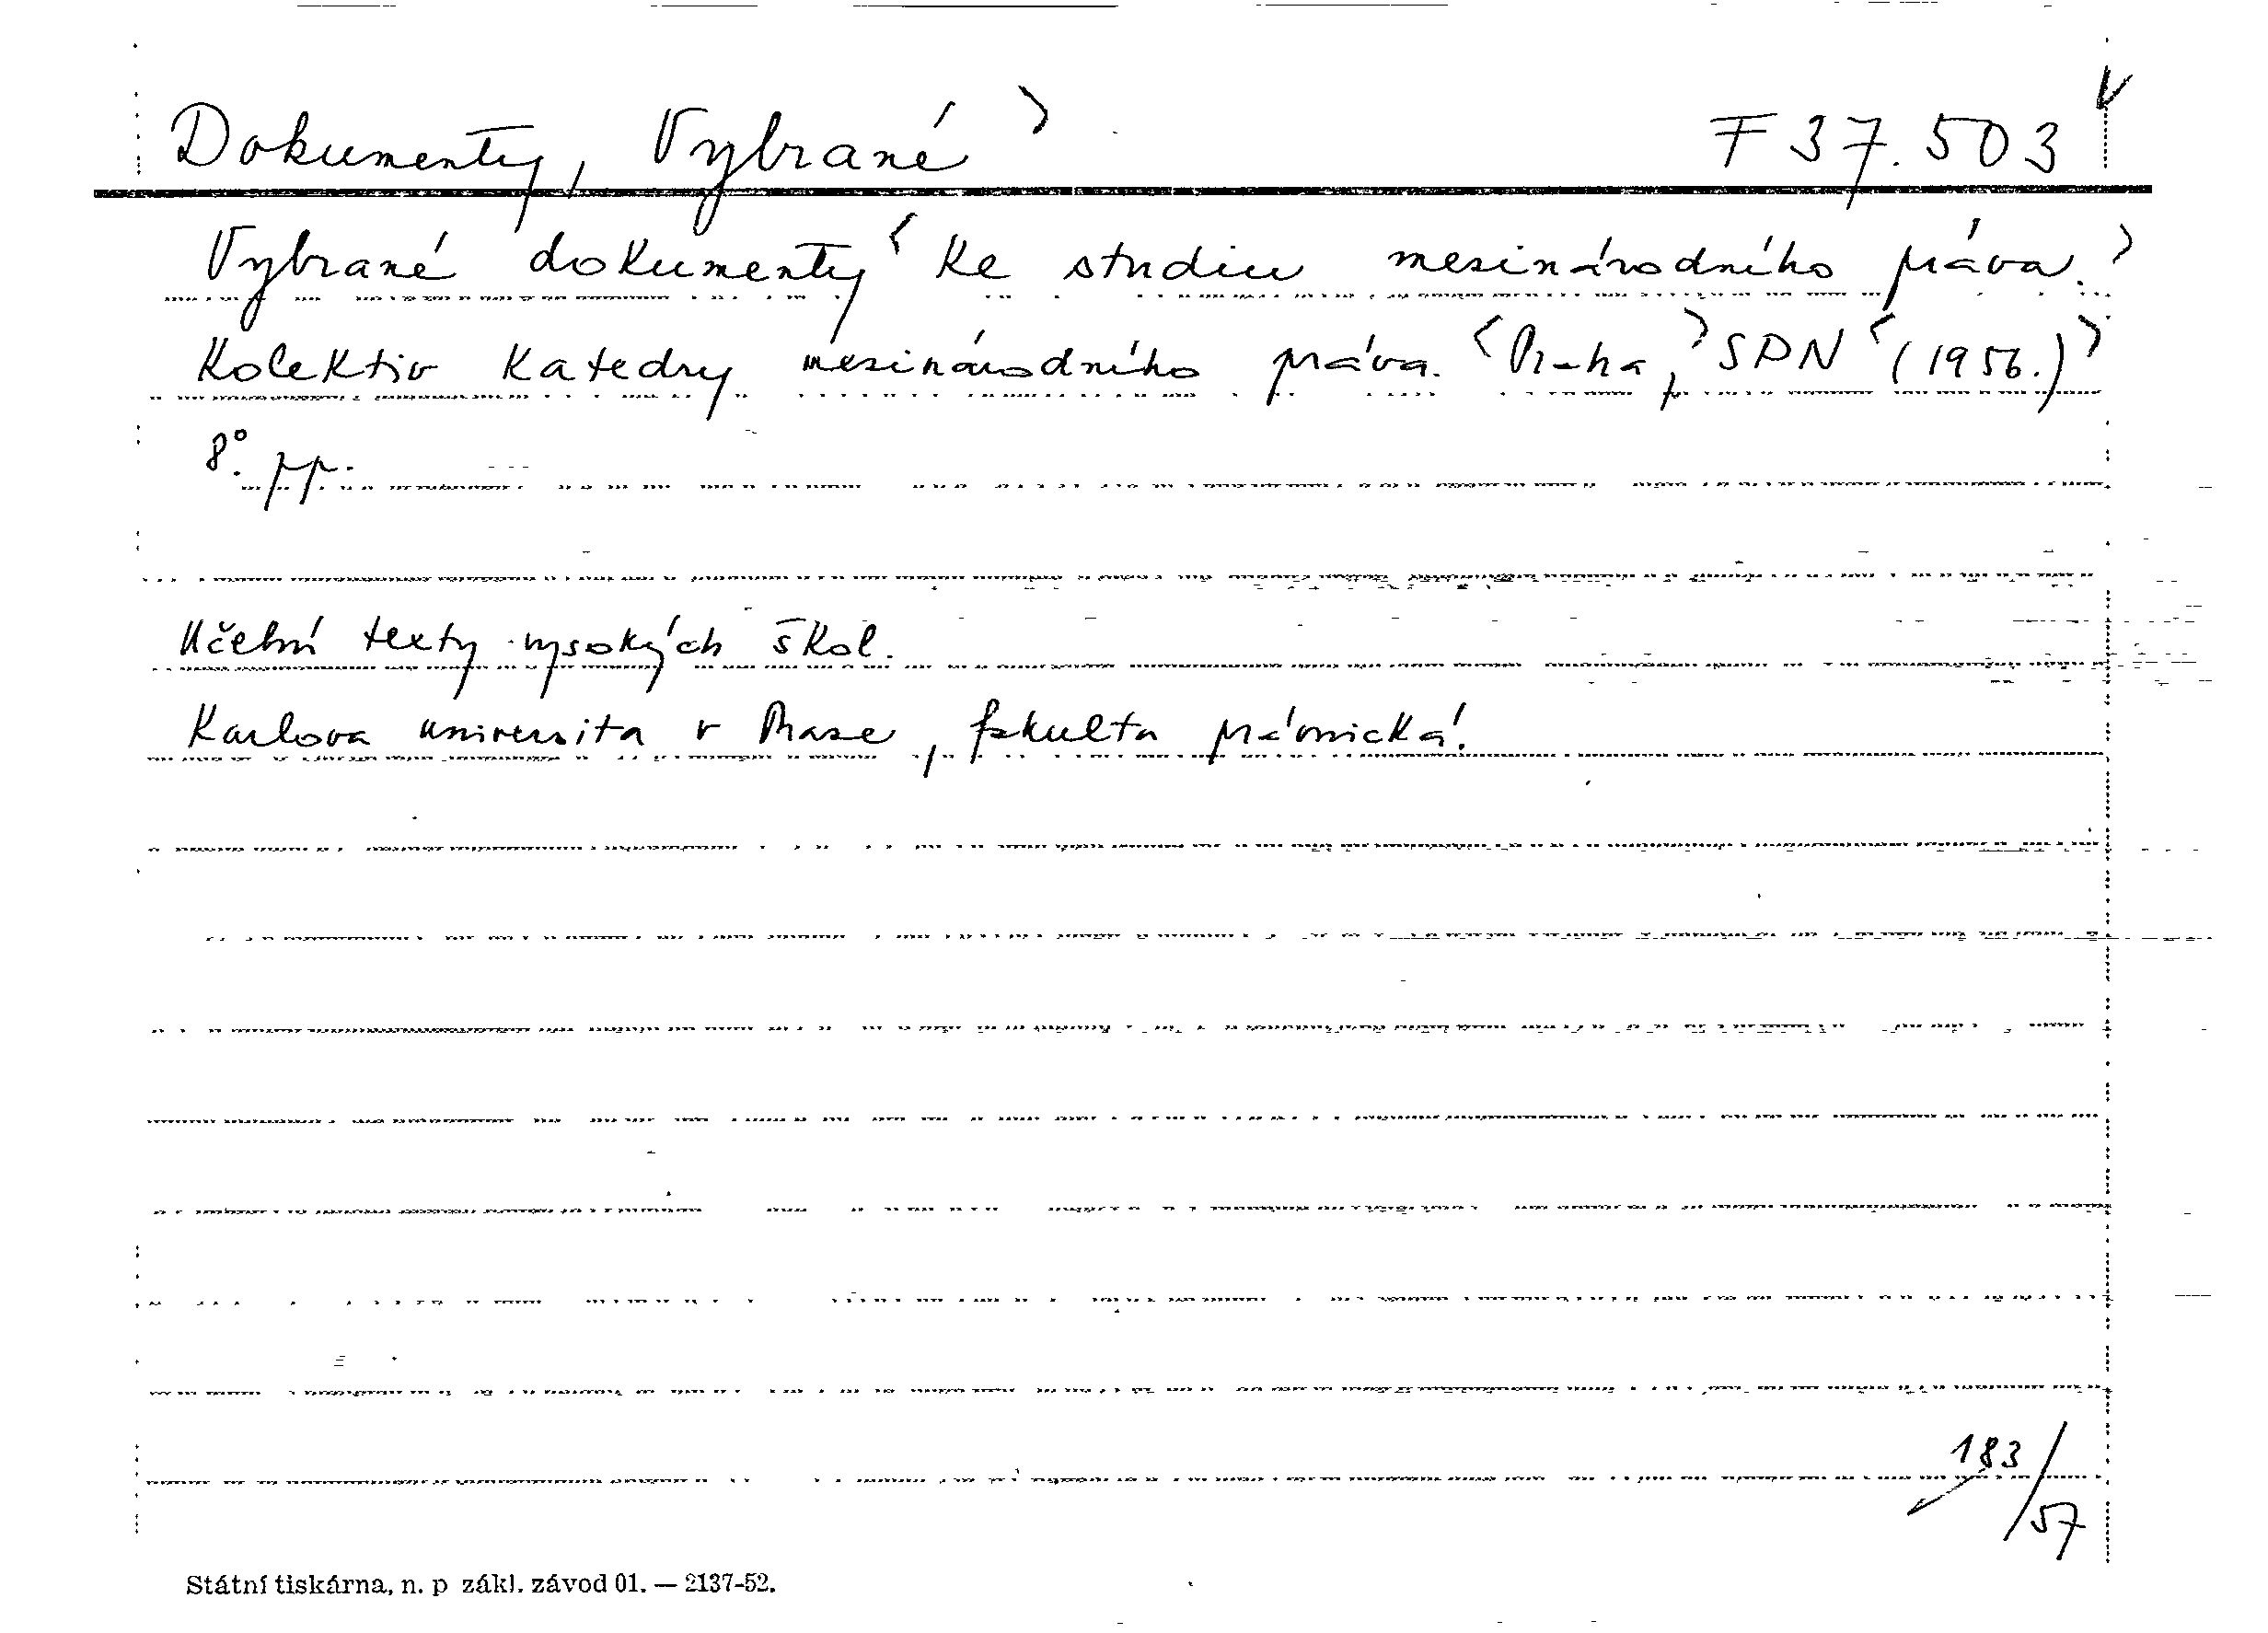 Dokumenty, Vybrané > F 37.503
Vybrané dokumenty < ke studiu mesinárodního práva. >
Kolektiv katedry mesinárodního práva. < Praha, > SPN < (1956.) >
8°. pp.
Učební texty vysokých škol.
Karlova universita v Praze, fakulta právnická.
183/57
Státní tiskárna, n. p zákl. závod 01. — 2137-52.